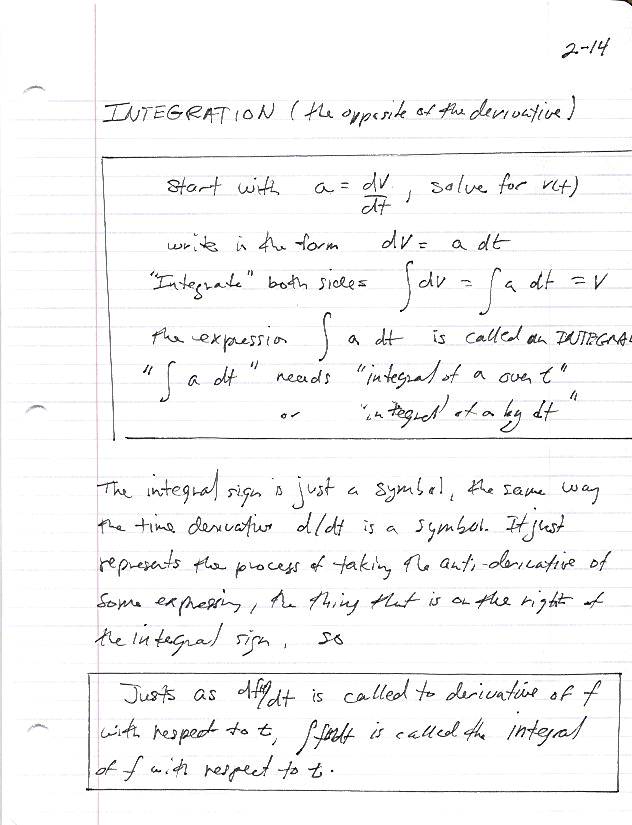 2-14
INTEGRATION (the opposite of the derivative)
Start with a = dv/dt, solve for v(t)
write in the form dv = a dt
"Integrate" both sides ∫dv = ∫a dt = v
the expression ∫ a dt is called an INTEGRAL
"∫ a dt" reads "integral of a over t"
or "integral of a by dt"
The integral sign is just a symbol, the same way
the time derivative d/dt is a symbol. It just
represents the process of taking the anti-derivative of
some expression, the thing that is on the right of
the integral sign, so
Justs as df/dt is called to derivative of f
with respect to t, ∫f dt is called the integral
of f with respect to t.